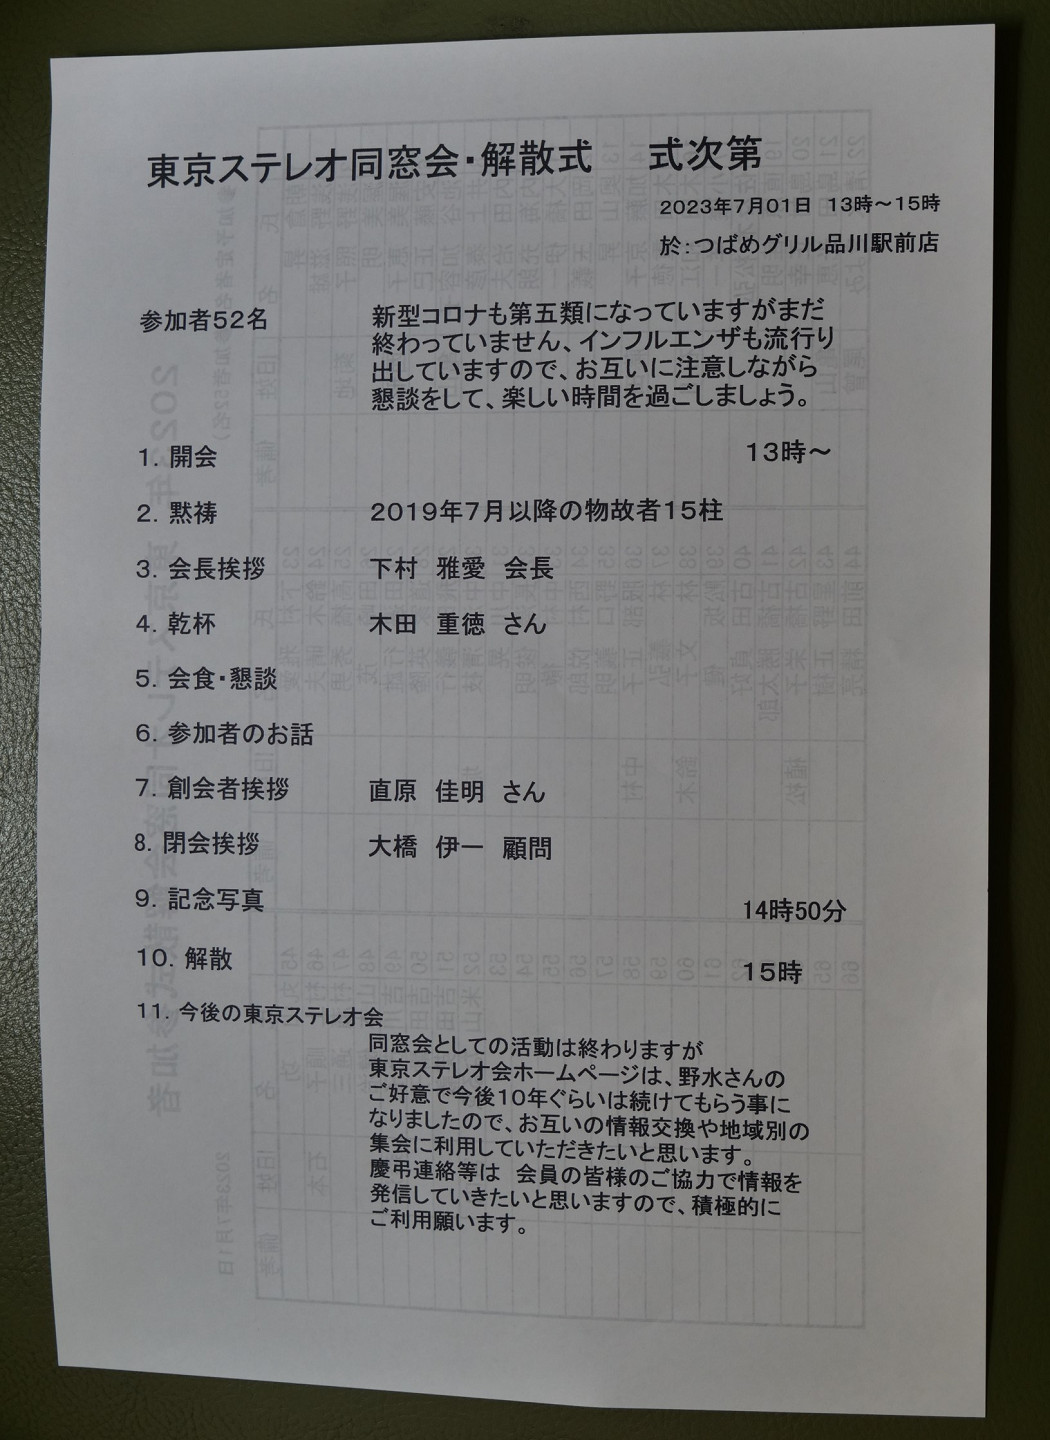 東京ステレオ同窓会・解散式　式次第
2023年7月01日　13時～15時
於：つばめグリル品川駅前店
参加者52名
新型コロナも第五類になっていますがまだ
終わっていません、インフルエンザも流行り
出していますので、お互いに注意しながら
懇談をして、楽しい時間を過ごしましょう。
1. 開会　13時～
2. 黙祷　2019年7月以降の物故者15柱
3. 会長挨拶　下村　雅愛　会長
4. 乾杯　木田　重徳　さん
5. 会食・懇談
6. 参加者のお話
7. 創会者挨拶　直原　佳明　さん
8. 閉会挨拶　大橋　伊一　顧問
9. 記念写真　14時50分
10. 解散　15時
11. 今後の東京ステレオ会
同窓会としての活動は終わりますが
東京ステレオ会ホームページは、野水さんの
ご好意で今後10年ぐらいは続けてもらう事に
なりましたので、お互いの情報交換や地域別の
集会に利用していただきたいと思います。
慶弔連絡等は　会員の皆様のご協力で情報を
発信していきたいと思いますので、積極的に
ご利用願います。